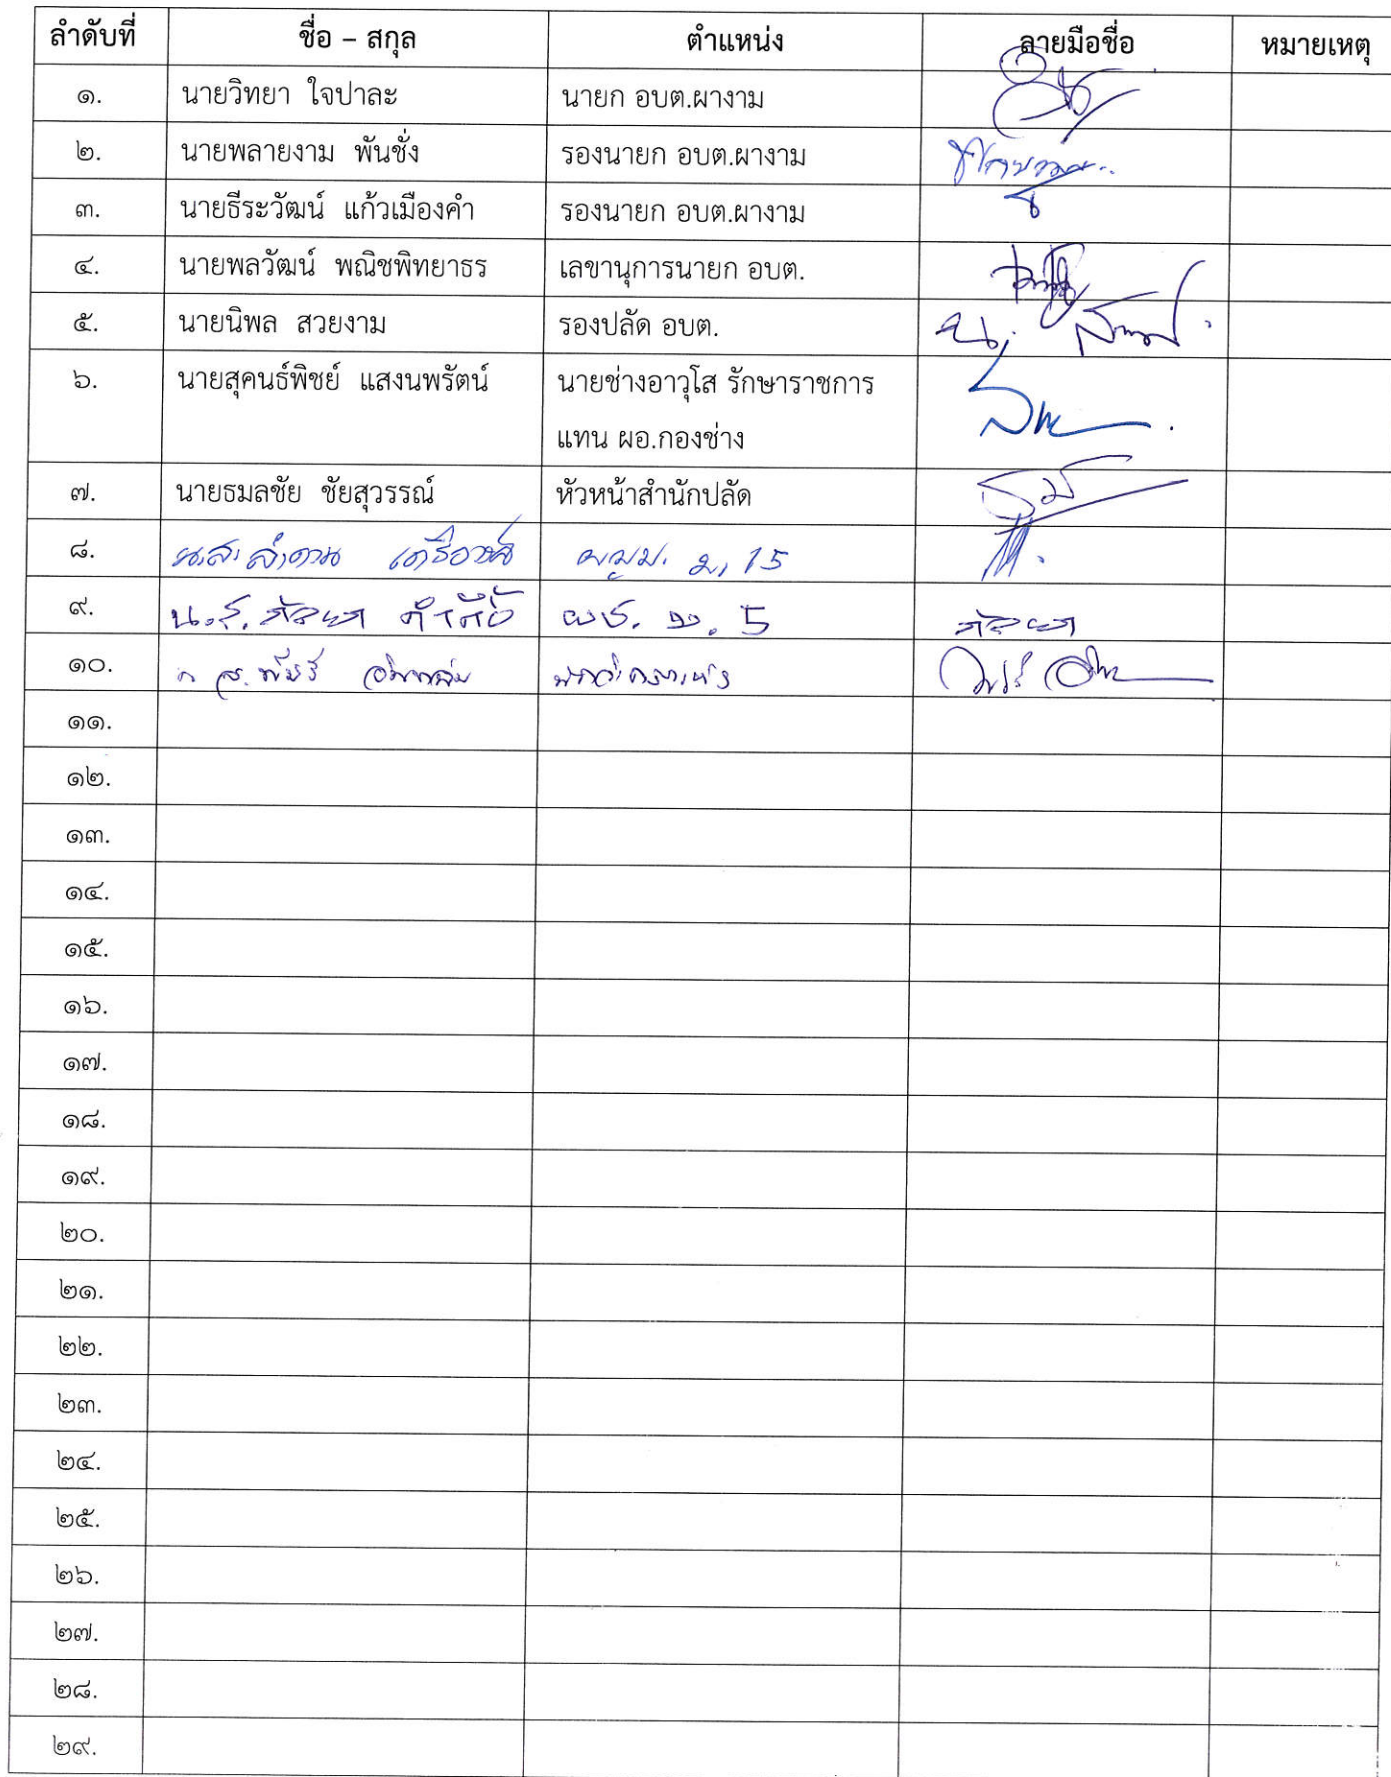 ลำดับที่ ชื่อ – สกุล ตำแหน่ง ลายมือชื่อ หมายเหตุ
๑. นายวิทยา ใจปาละ นายก อบต.ผางาม
๒. นายพลายงาม พันชั่ง รองนายก อบต.ผางาม
๓. นายธีระวัฒน์ แก้วเมืองคำ รองนายก อบต.ผางาม
๔. นายพลวัฒน์ พณิชพิทยาธร เลขานุการนายก อบต.
๕. นายนิพล สวยงาม รองปลัด อบต.
๖. นายสุคนธ์พิชย์ แสงนพรัตน์ นายช่างอาวุโส รักษาราชการ
แทน ผอ.กองช่าง
๗. นายธมลชัย ชัยสุวรรณ์ หัวหน้าสำนักปลัด
๘. น.ส. ม. 15
๙. น.ส. ผช. ม. 5
๑๐.
๑๑.
๑๒.
๑๓.
๑๔.
๑๕.
๑๖.
๑๗.
๑๘.
๑๙.
๒๐.
๒๑.
๒๒.
๒๓.
๒๔.
๒๕.
๒๖.
๒๗.
๒๘.
๒๙.